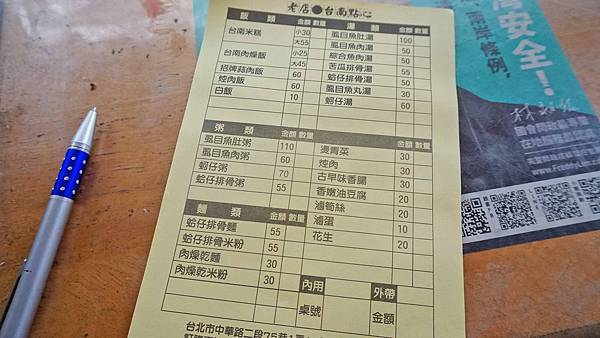 老店●台南點心
飯類 金額 數量
台南米糕 小30 大55
台南肉燥飯 小25 大45
招牌蒜肉飯 60
焢肉飯 60
白飯 10
湯類 金額 數量
虱目魚肚湯 100
虱目魚肉湯 50
綜合魚肉湯 50
苦瓜排骨湯 55
蛤仔排骨湯 50
虱目魚丸湯 30
蚵仔湯 60
粥類 金額 數量
虱目魚肚粥 110
虱目魚肉粥 60
蚵仔粥 70
蛤仔排骨粥 55
金額 數量
燙青菜 30
焢肉 30
古早味香腸 30
香嫩油豆腐 20
滷筍絲 20
滷蛋 10
花生 20
麵類 金額 數量
蛤仔排骨麵 55
蛤仔排骨米粉 55
肉燥乾麵 30
肉燥乾米粉 30
內用 外帶
桌號 金額
台北市中華路二段75巷
安全!
兩岸條例,